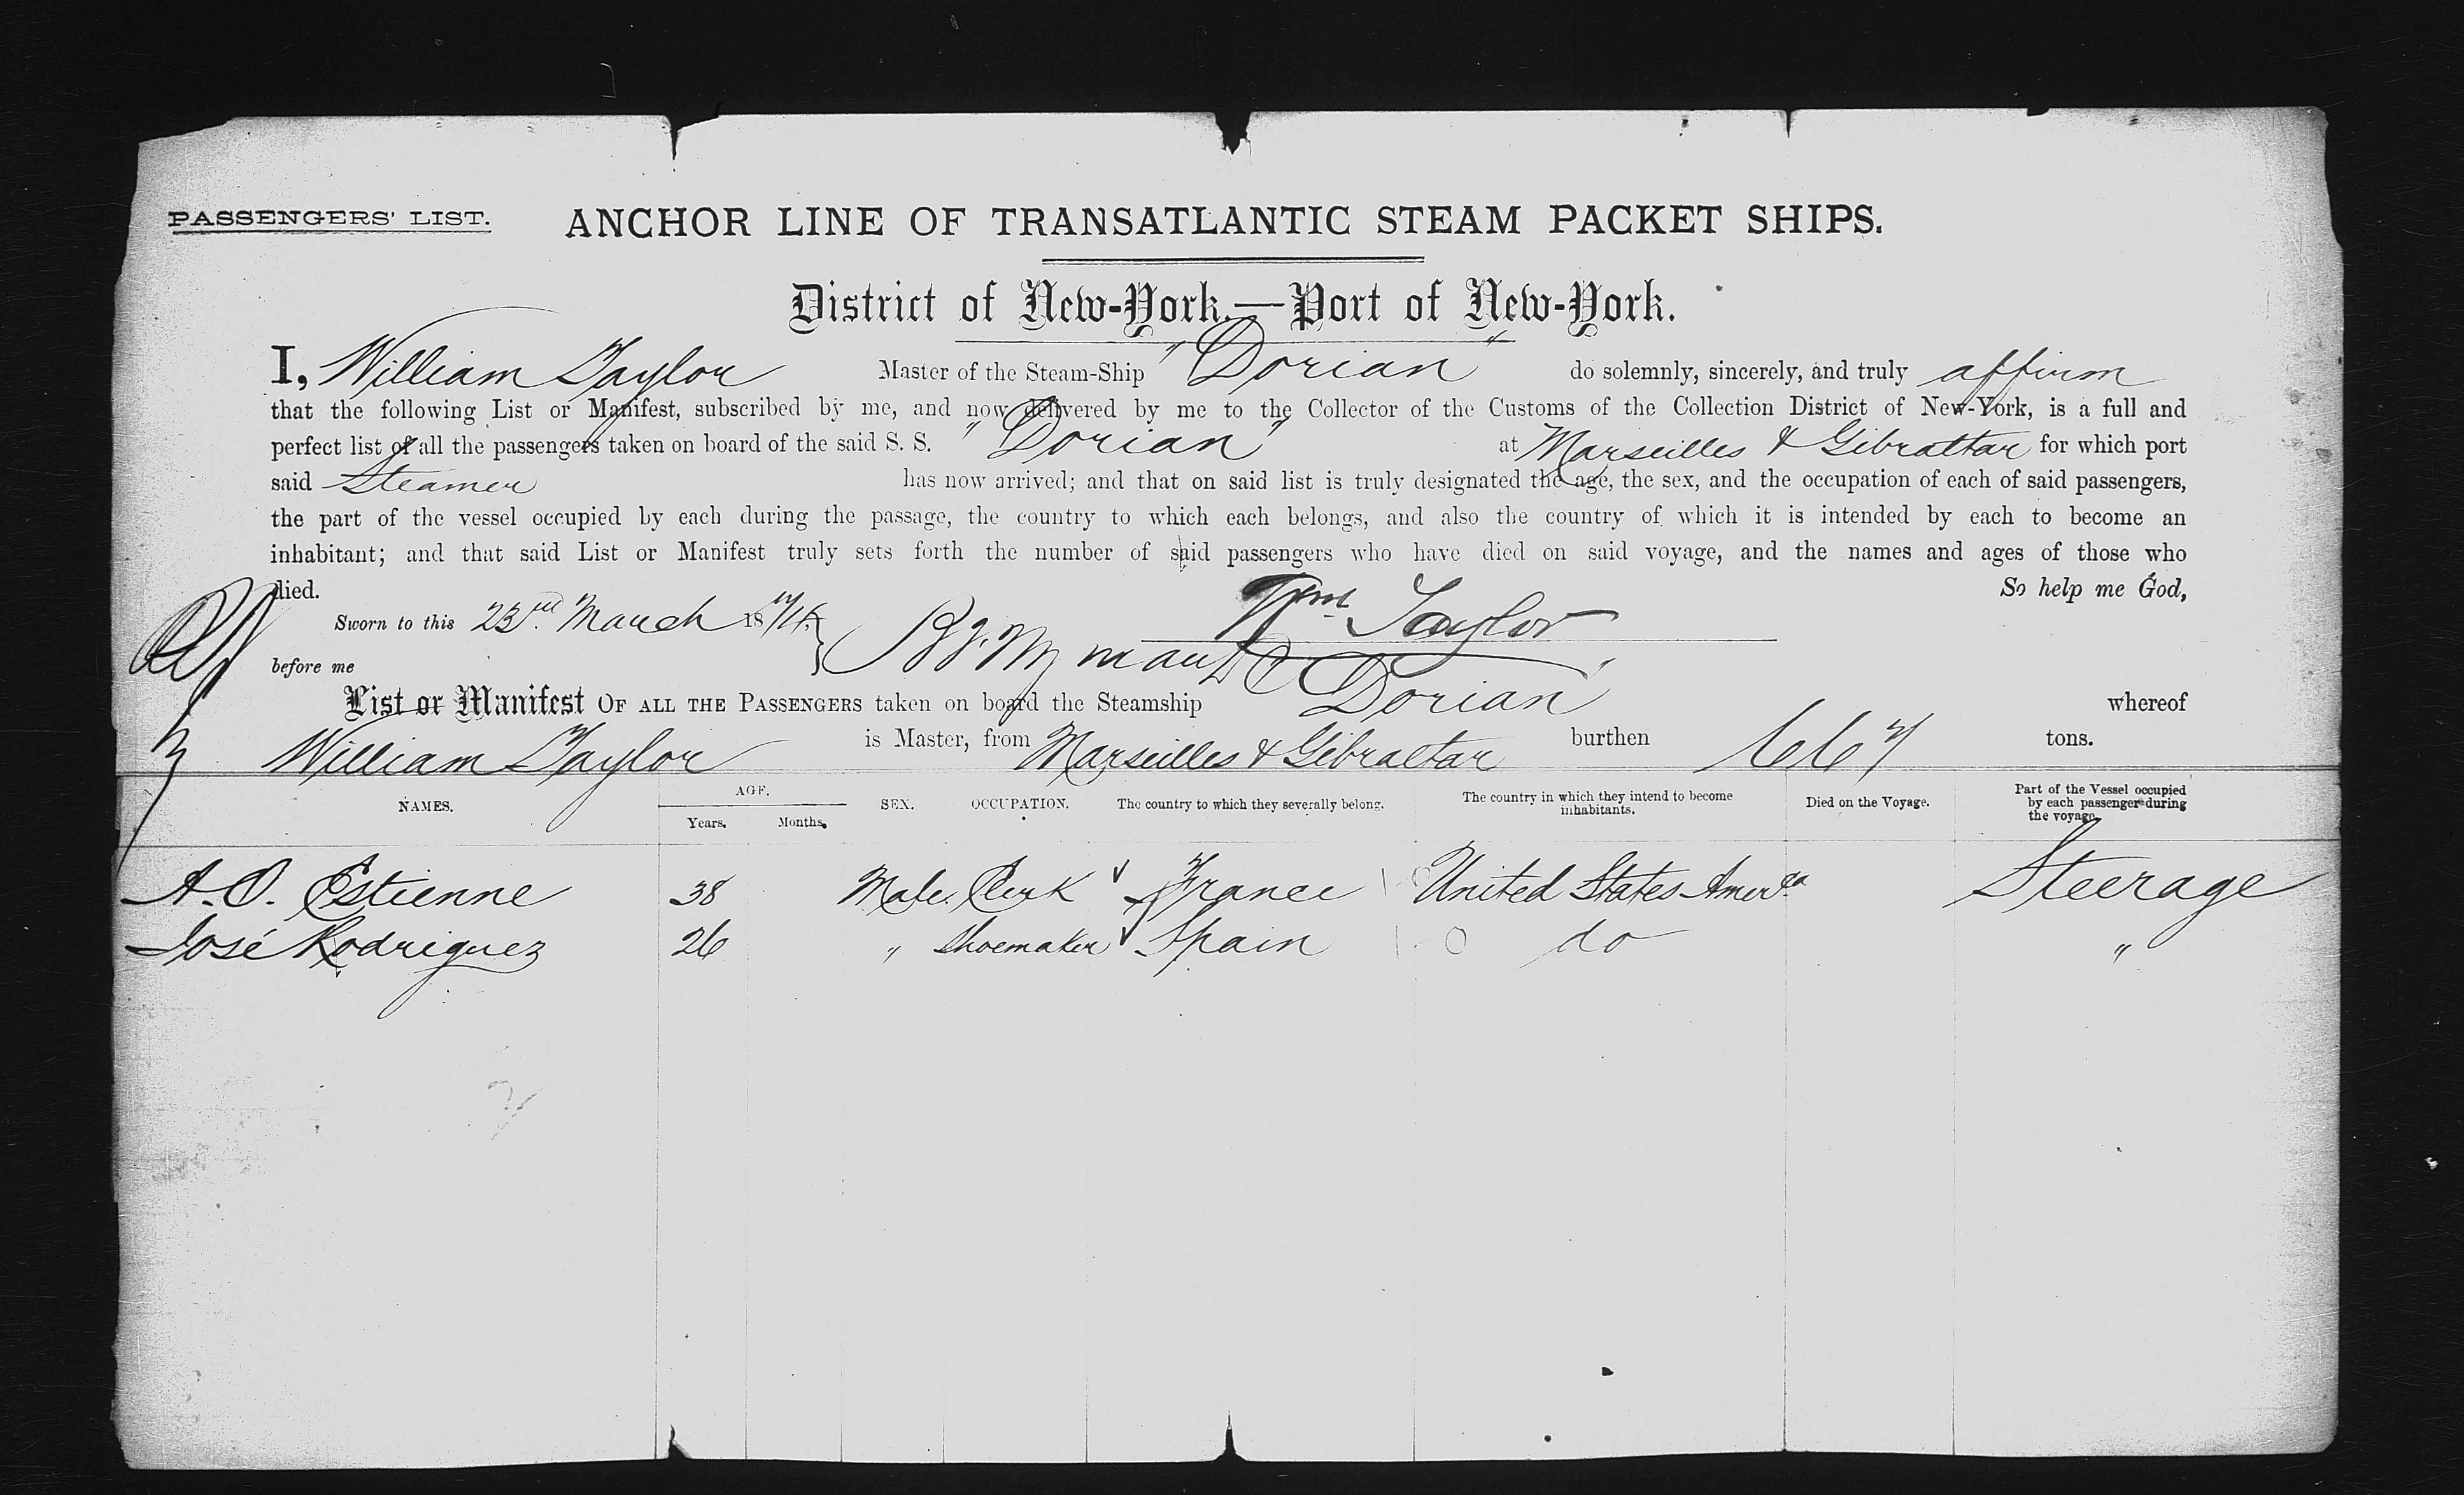 PASSENGERS' LIST. ANCHOR LINE OF TRANSATLANTIC STEAM PACKET SHIPS.
District of New-York.—Port of New-York.
I, William Taylor Master of the Steam-Ship "Dorian" do solemnly, sincerely, and truly affirm
that the following List or Manifest, subscribed by me, and now delivered by me to the Collector of the Customs of the Collection District of New-York, is a full and
perfect list of all the passengers taken on board of the said S. S. "Dorian" at Marseilles & Gibraltar for which port
said Steamer has now arrived; and that on said list is truly designated the age, the sex, and the occupation of each of said passengers,
the part of the vessel occupied by each during the passage, the country to which each belongs, and also the country of which it is intended by each to become an
inhabitant; and that said List or Manifest truly sets forth the number of said passengers who have died on said voyage, and the names and ages of those who
died. So help me God,
Sworn to this 23rd March 18 Wm Taylor
before me
List or Manifest OF ALL THE PASSENGERS taken on board the Steamship Dorian" whereof
William Taylor is Master, from Marseilles & Gibraltar burthen 667 tons.
NAMES. AGE. Years. Months. SEX. OCCUPATION. The country to which they severally belong. The country in which they intend to become inhabitants. Died on the Voyage. Part of the Vessel occupied by each passenger during the voyage.
A. O. Estienne 38 Male. Clerk France United States Amerca Steerage
José Rodriguez 26 " Shoemaker Spain 0 do "